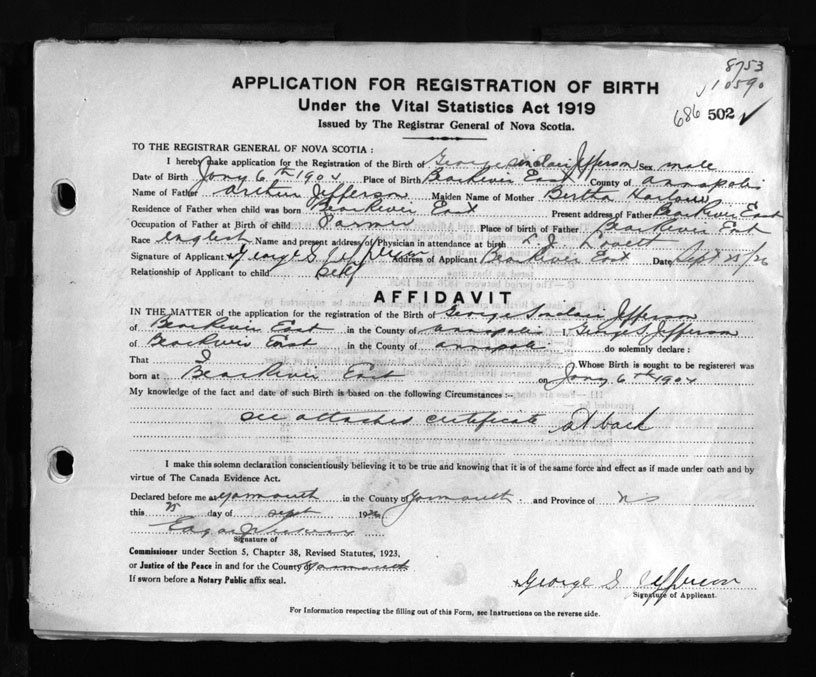 8753
10590
686 502 ✓
APPLICATION FOR REGISTRATION OF BIRTH
Under the Vital Statistics Act 1919
Issued by The Registrar General of Nova Scotia.
TO THE REGISTRAR GENERAL OF NOVA SCOTIA :
I hereby make application for the Registration of the Birth of George Sinclair Jefferson Sex male
Date of Birth Jany 6th 1904 Place of Birth Bear River East County of Annapolis
Name of Father Arthur Jefferson Maiden Name of Mother Bertha Harlow
Residence of Father when child was born Bear River East Present address of Father Bear River East
Occupation of Father at Birth of child Farmer Place of birth of Father Bear River East
Race English Name and present address of Physician in attendance at birth L. J. Lovett
Signature of Applicant George S Jefferson Address of Applicant Bear River East Date Sept 25/26
Relationship of Applicant to child Self
AFFIDAVIT
IN THE MATTER of the application for the registration of the Birth of George Sinclair Jefferson
of Bear River East in the County of Annapolis I, George S. Jefferson
of Bear River East in the County of Annapolis do solemnly declare :
That I Whose Birth is sought to be registered was
born at Bear River East on Jany 6th 1904
My knowledge of the fact and date of such Birth is based on the following Circumstances :–
see attached certificate at back
I make this solemn declaration conscientiously believing it to be true and knowing that it is of the same force and effect as if made under oath and by
virtue of The Canada Evidence Act.
Declared before me at Yarmouth in the County of Yarmouth and Province of NS
this 25 day of Sept 1926
Signature of
Commissioner under Section 5, Chapter 38, Revised Statutes, 1923.
or Justice of the Peace in and for the County of Yarmouth
If sworn before a Notary Public affix seal.
George S Jefferson
Signature of Applicant.
For Information respecting the filling out of this Form, see Instructions on the reverse side.